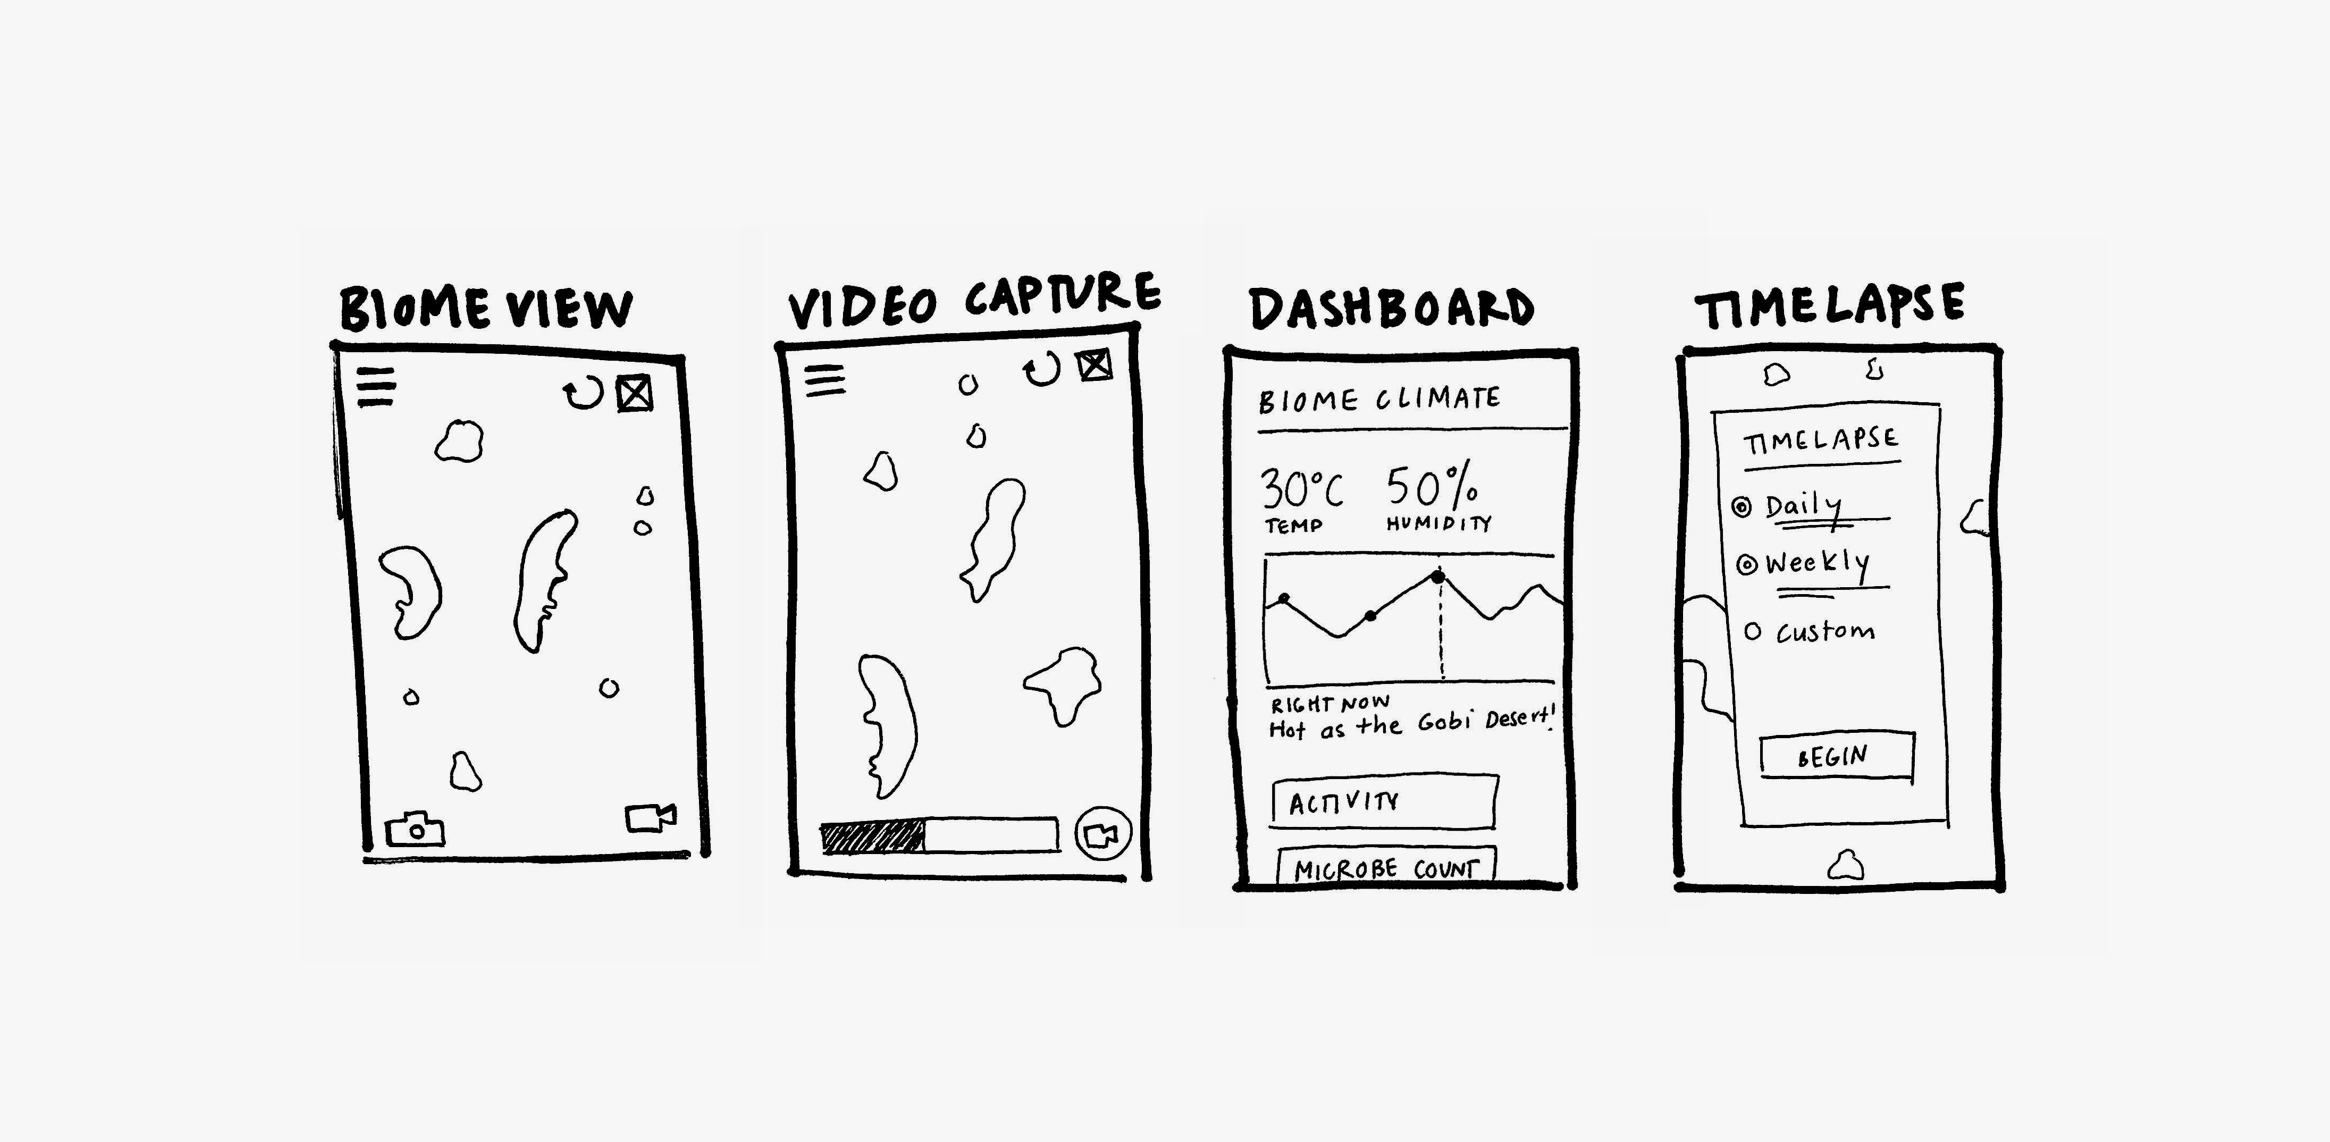 BIOME VIEW
VIDEO CAPTURE
DASHBOARD
BIOME CLIMATE
30°C 50%
TEMP HUMIDITY
RIGHT NOW
Hot as the Gobi Desert!
ACTIVITY
MICROBE COUNT
TIMELAPSE
TIMELAPSE
Daily
Weekly
Custom
BEGIN